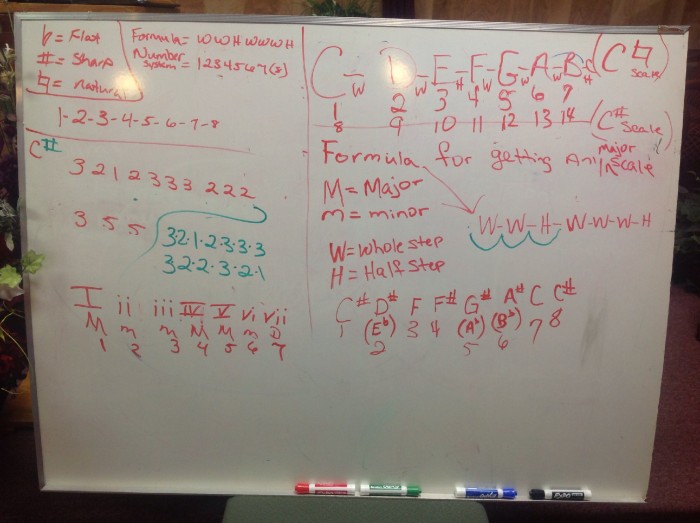 b = Flat
# = Sharp
♮ = natural
Formula = WWHWWWH
Number
System = 1234567(8)
1-2-3-4-5-6-7-8
C#
3 2 1 2 3 3 3 2 2 2
3 5 5
3·2·1·2·3·3·3
3·2·2·3·2·1
I ii iii IV V vi vii
M m m M M m D
1 2 3 4 5 6 7
C-D-E-F-G-A-B-C (C♮ scale)
W W H W W W H
1 2 3 4 5 6 7
8 9 10 11 12 13 14 (C# scale)
Formula for getting any major scale
M = Major
m = minor
W-W-H-W-W-W-H
W = whole step
H = Half step
C# D# F F# G# A# C C#
(Eb) (Ab) (Bb)
1 2 3 4 5 6 7 8